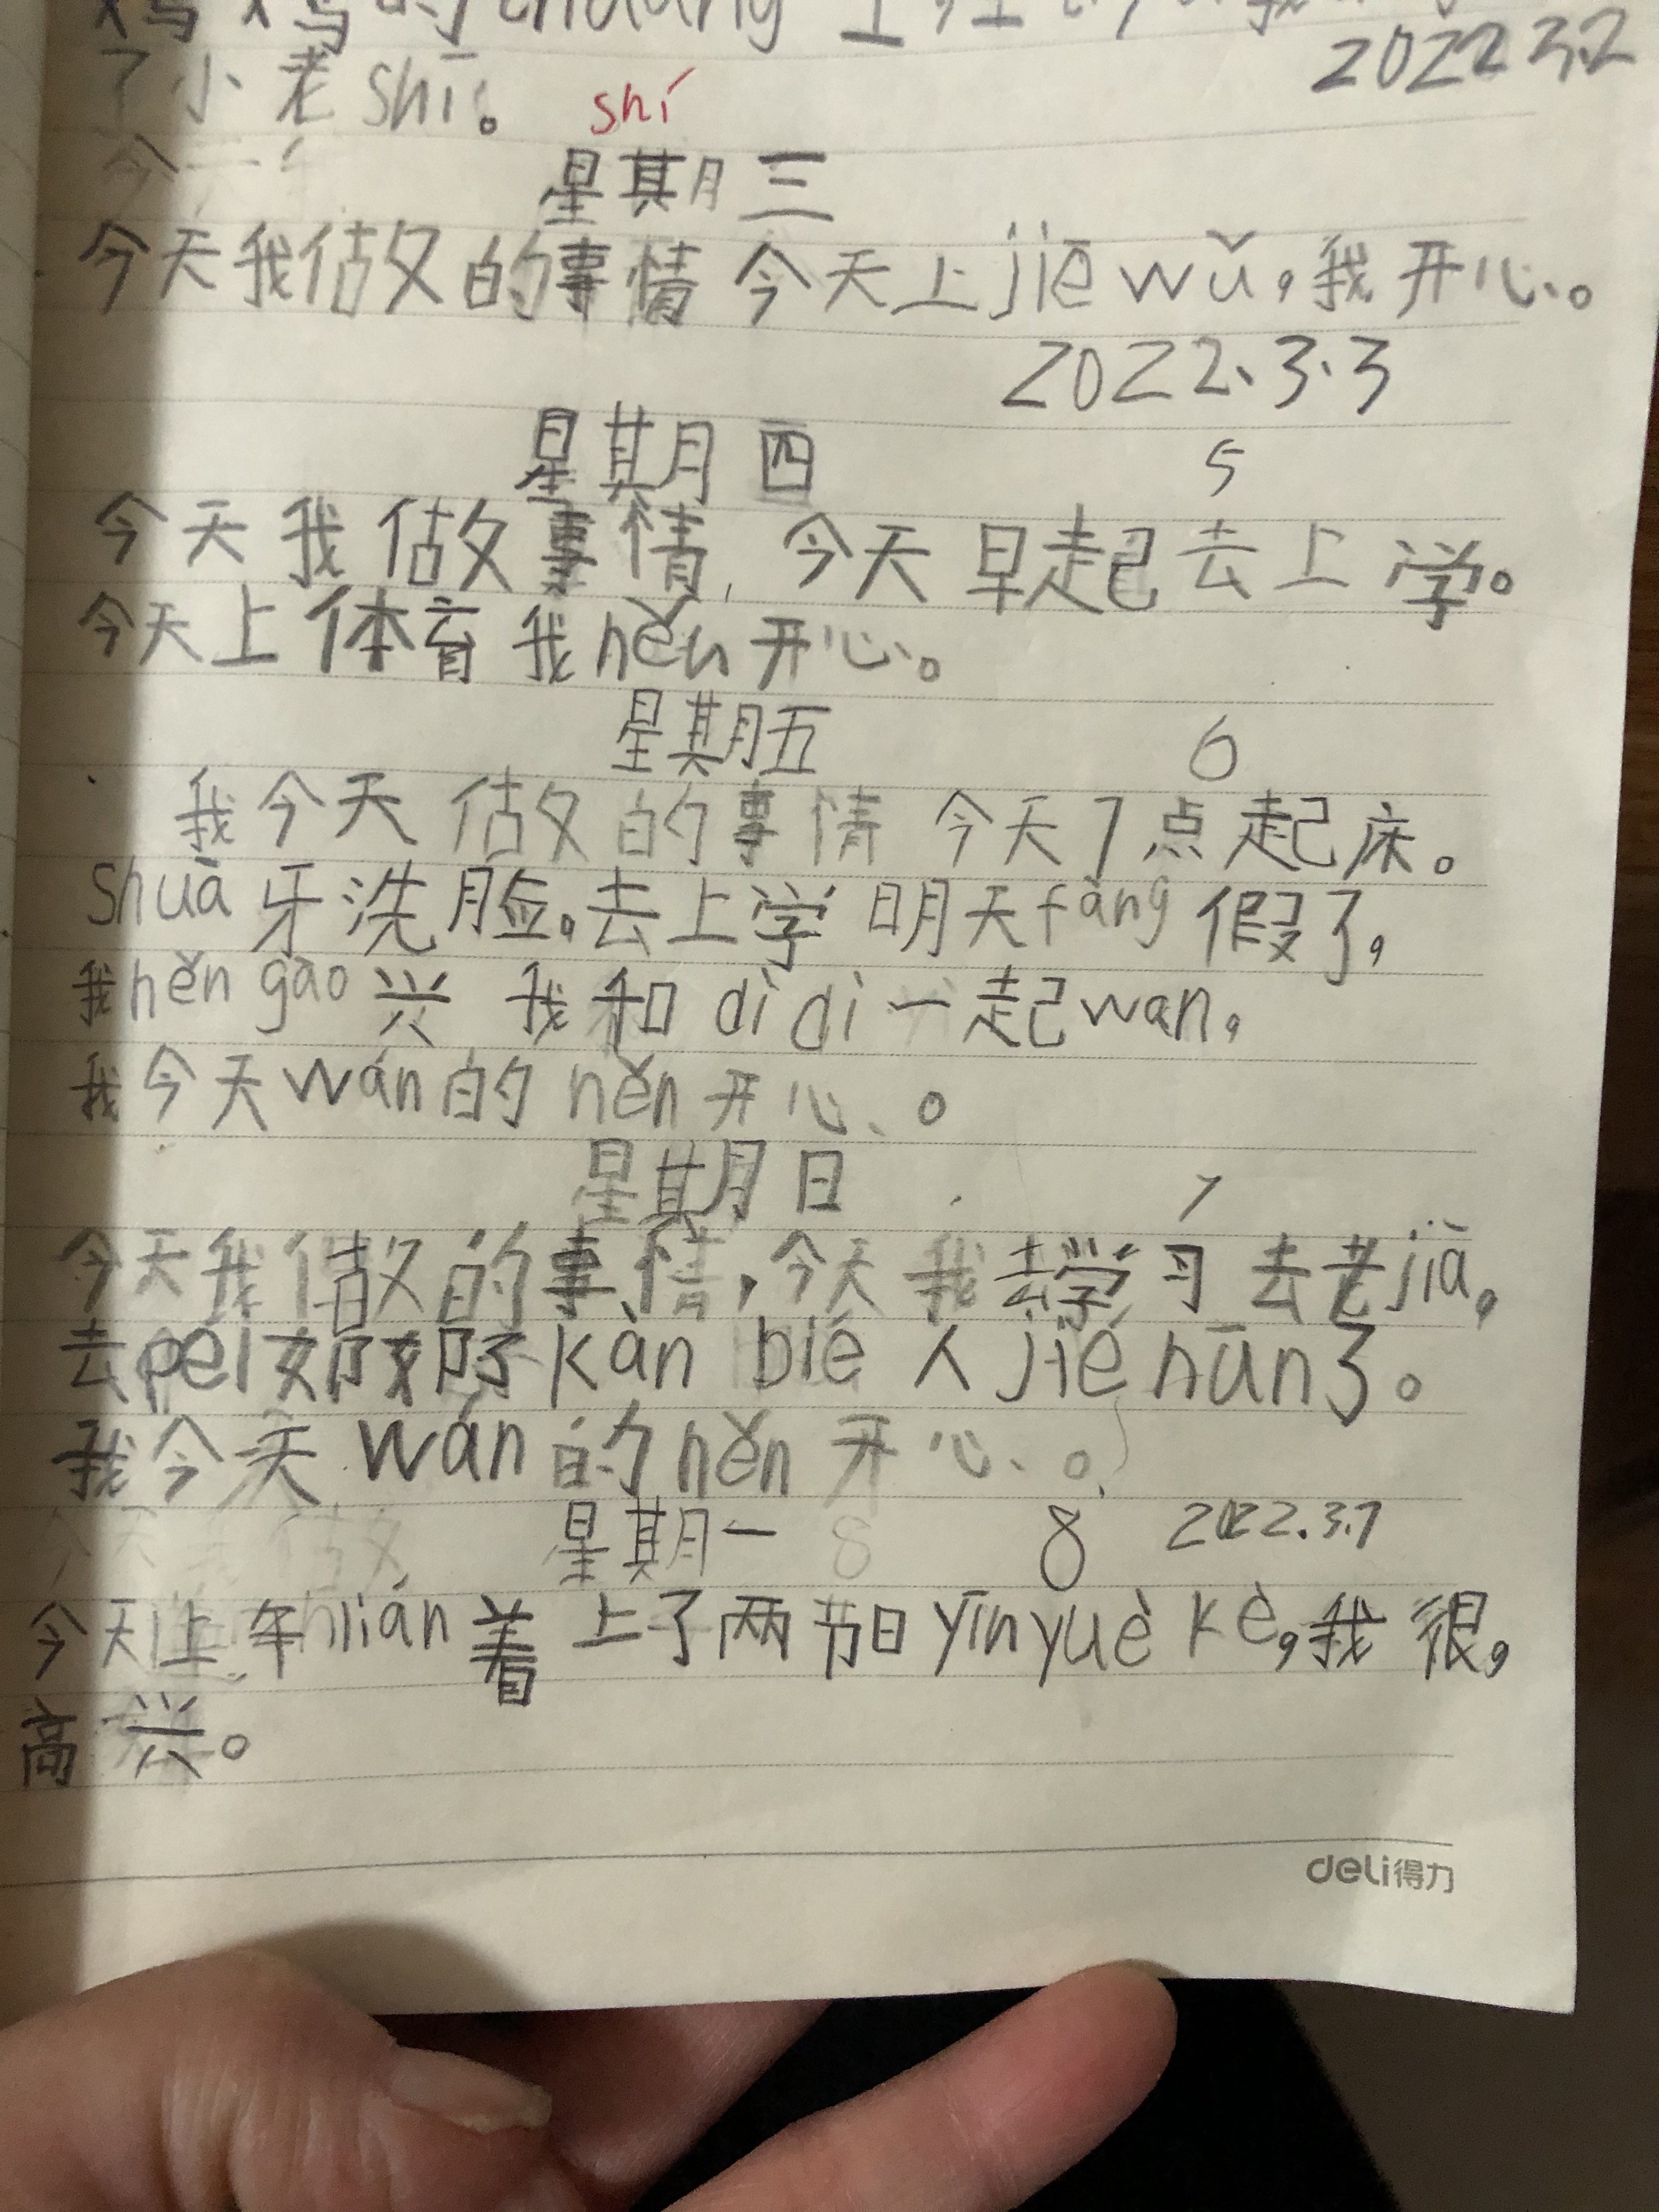 了小老shī。 shí
2022 3.2
星期三
今天我做的事情 今天上jiē wǔ,我开心。
2022.3.3
星期四 5
今天我做事情,今天早起去上学。
今天上体育我hěn开心。
星期五 6
我今天做的事情 今天7点起床。
shuā牙洗脸。去上学 明天fàng假了,
我hěn gāo兴 我和dì di一起wan,
我今天wán的hěn开心。
星期日 7
今天我做的事情,今天我去学习 去老jiā,
去péi奶奶kàn bié人jié hūn了。
我今天wán的hěn开心。
星期一 8 2022.3.7
今天上午lián着上了两节yīn yuè kè,我很,
高兴。
deli得力